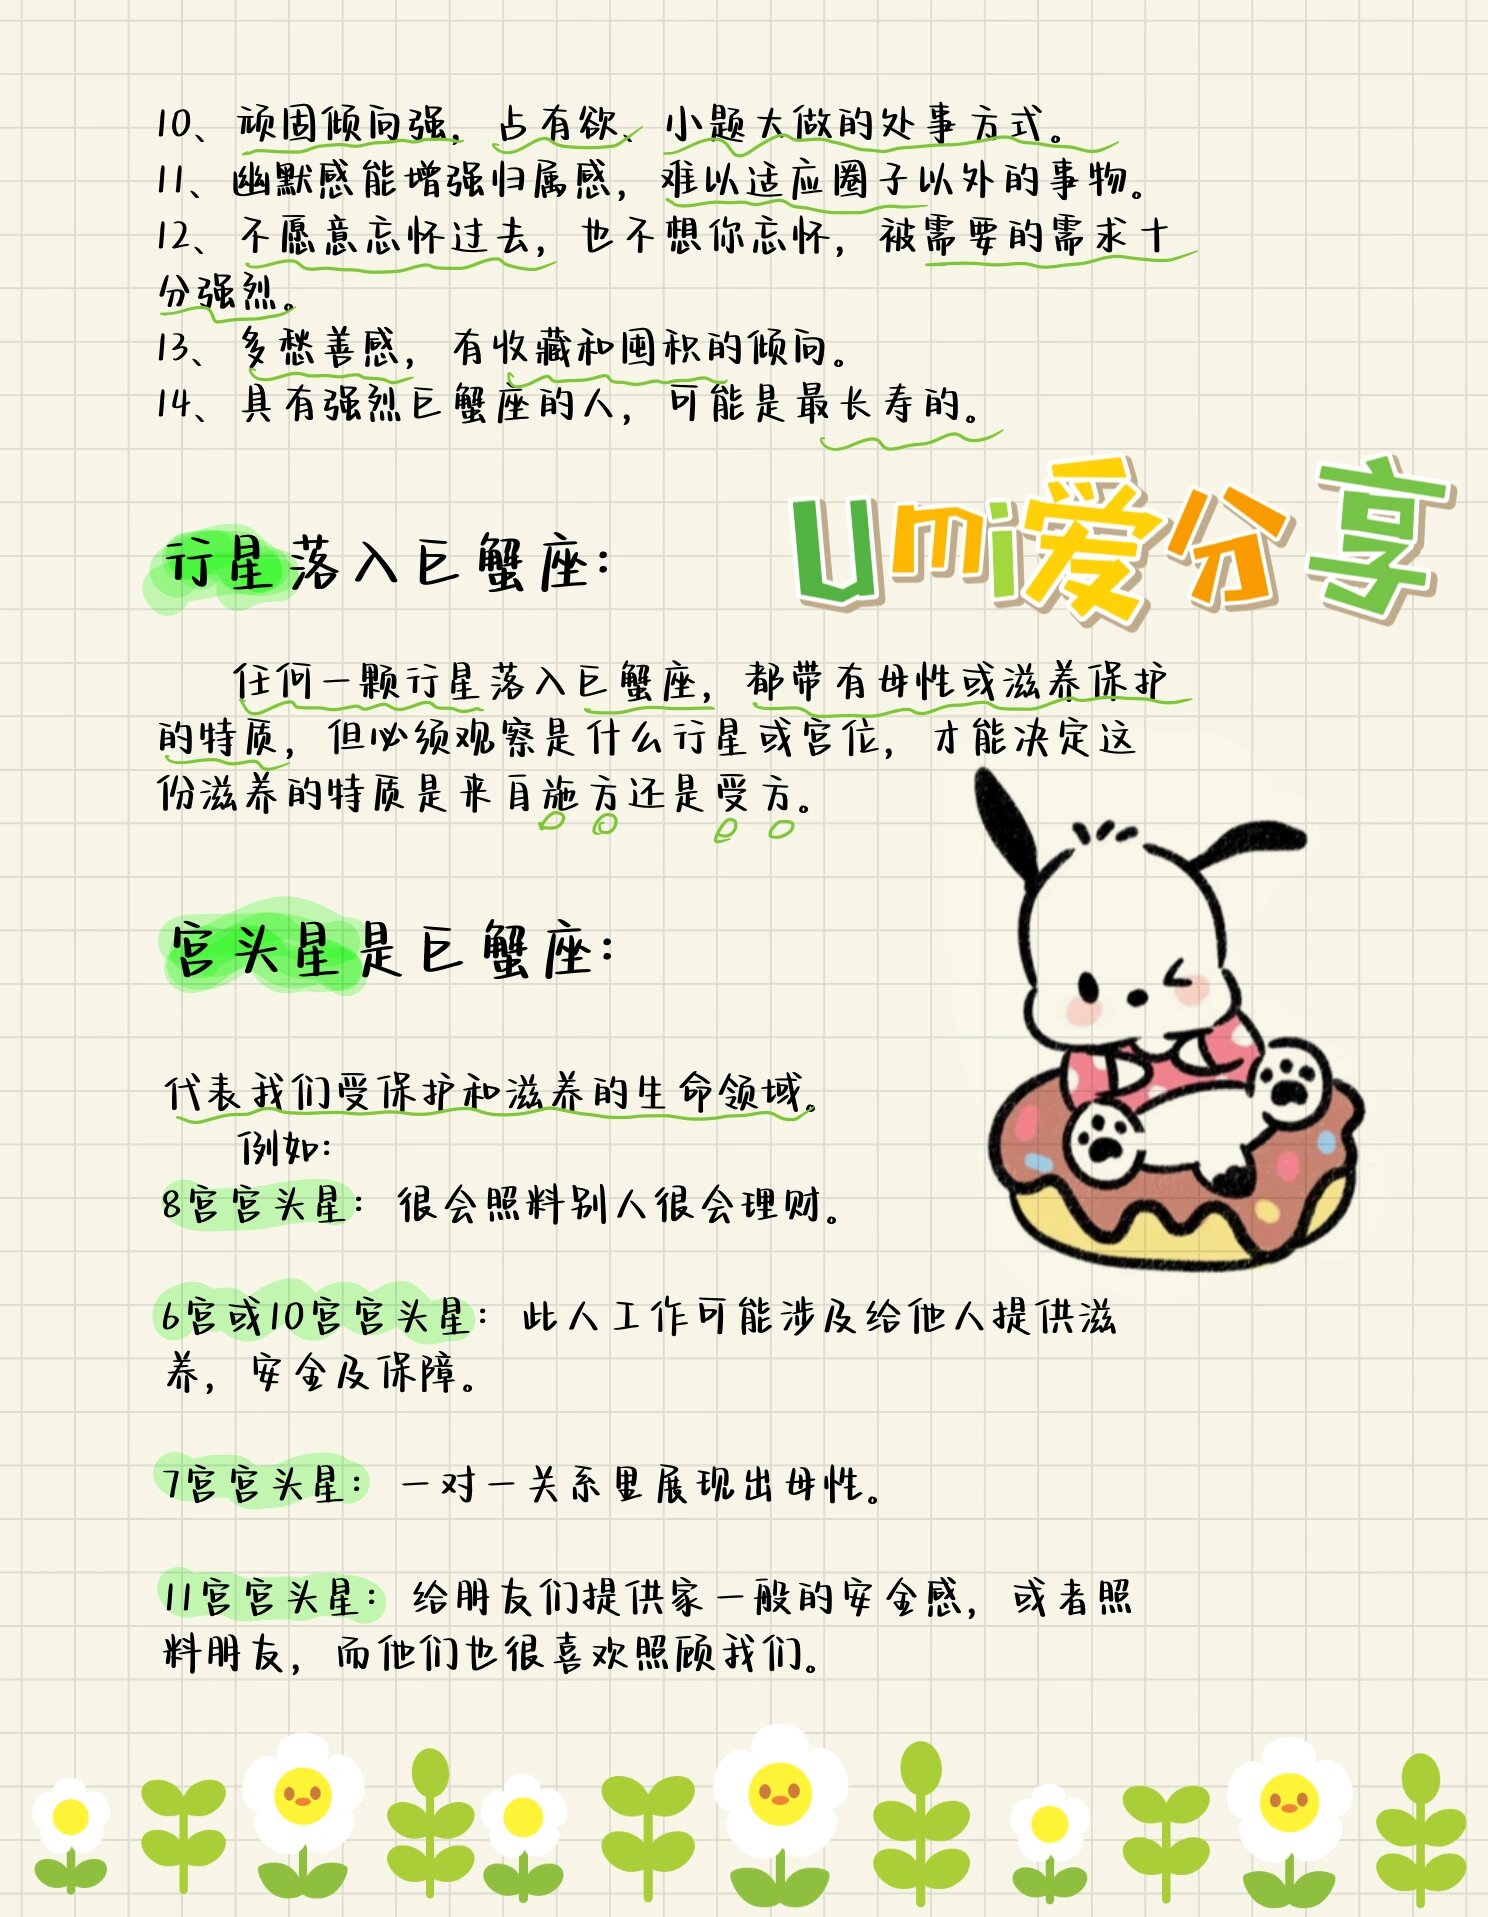 10、顽固倾向强，占有欲、小题大做的处事方式。
11、幽默感能增强归属感，难以适应圈子以外的事物。
12、不愿意忘怀过去，也不想你忘怀，被需要的需求十
分强烈。
13、多愁善感，有收藏和囤积的倾向。
14、具有强烈巨蟹座的人，可能是最长寿的。
Umi爱分享
行星落入巨蟹座：
任何一颗行星落入巨蟹座，都带有母性或滋养保护
的特质，但必须观察是什么行星或宫位，才能决定这
份滋养的特质是来自施方还是受方。
宫头星是巨蟹座：
代表我们受保护和滋养的生命领域。
例如：
8宫宫头星：很会照料别人很会理财。
6宫或10宫宫头星：此人工作可能涉及给他人提供滋
养，安全及保障。
7宫宫头星：一对一关系里展现出母性。
11宫宫头星：给朋友们提供家一般的安全感，或者照
料朋友，而他们也很喜欢照顾我们。